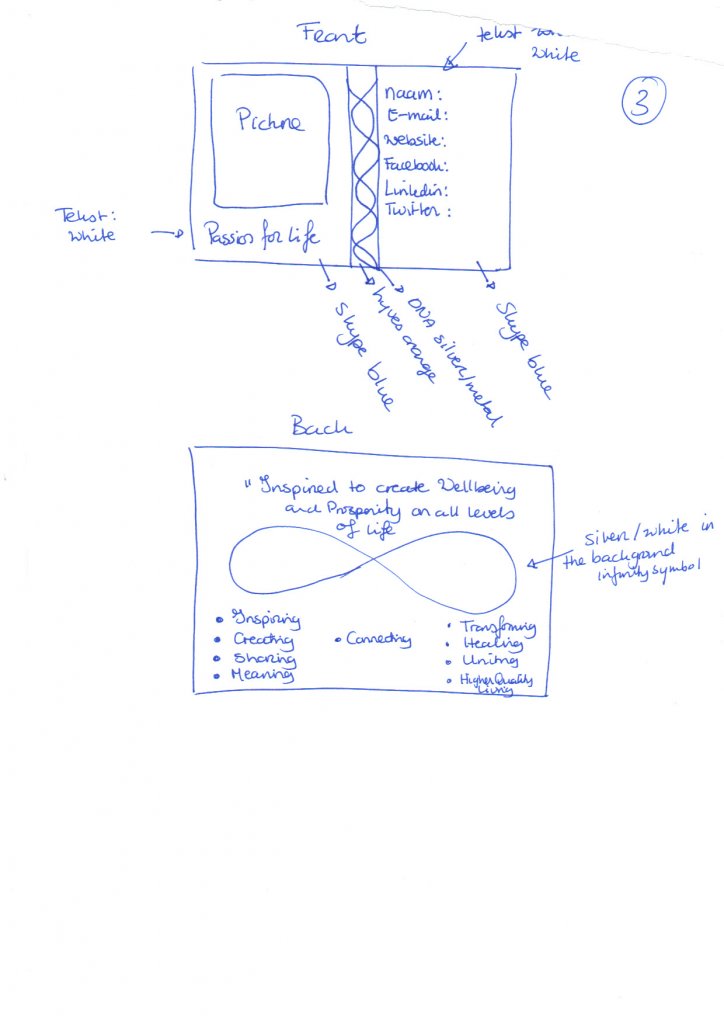 Front
tekst
White
3
Picture
naam:
E-mail:
Website:
Facebook:
Linkedin:
Twitter:
Tekst:
White
Passion for Life
Skype blue
hyves orange
DNA silver/metal
Skype blue
Back
"Inspired to create Wellbeing
and Prosperity on all levels
of life
silver/white in
the background
infinity symbol
• Inspiring
• Creating
• Sharing
• Meaning
• Connecting
• Transforming
• Healing
• Uniting
• Higher Quality
Living